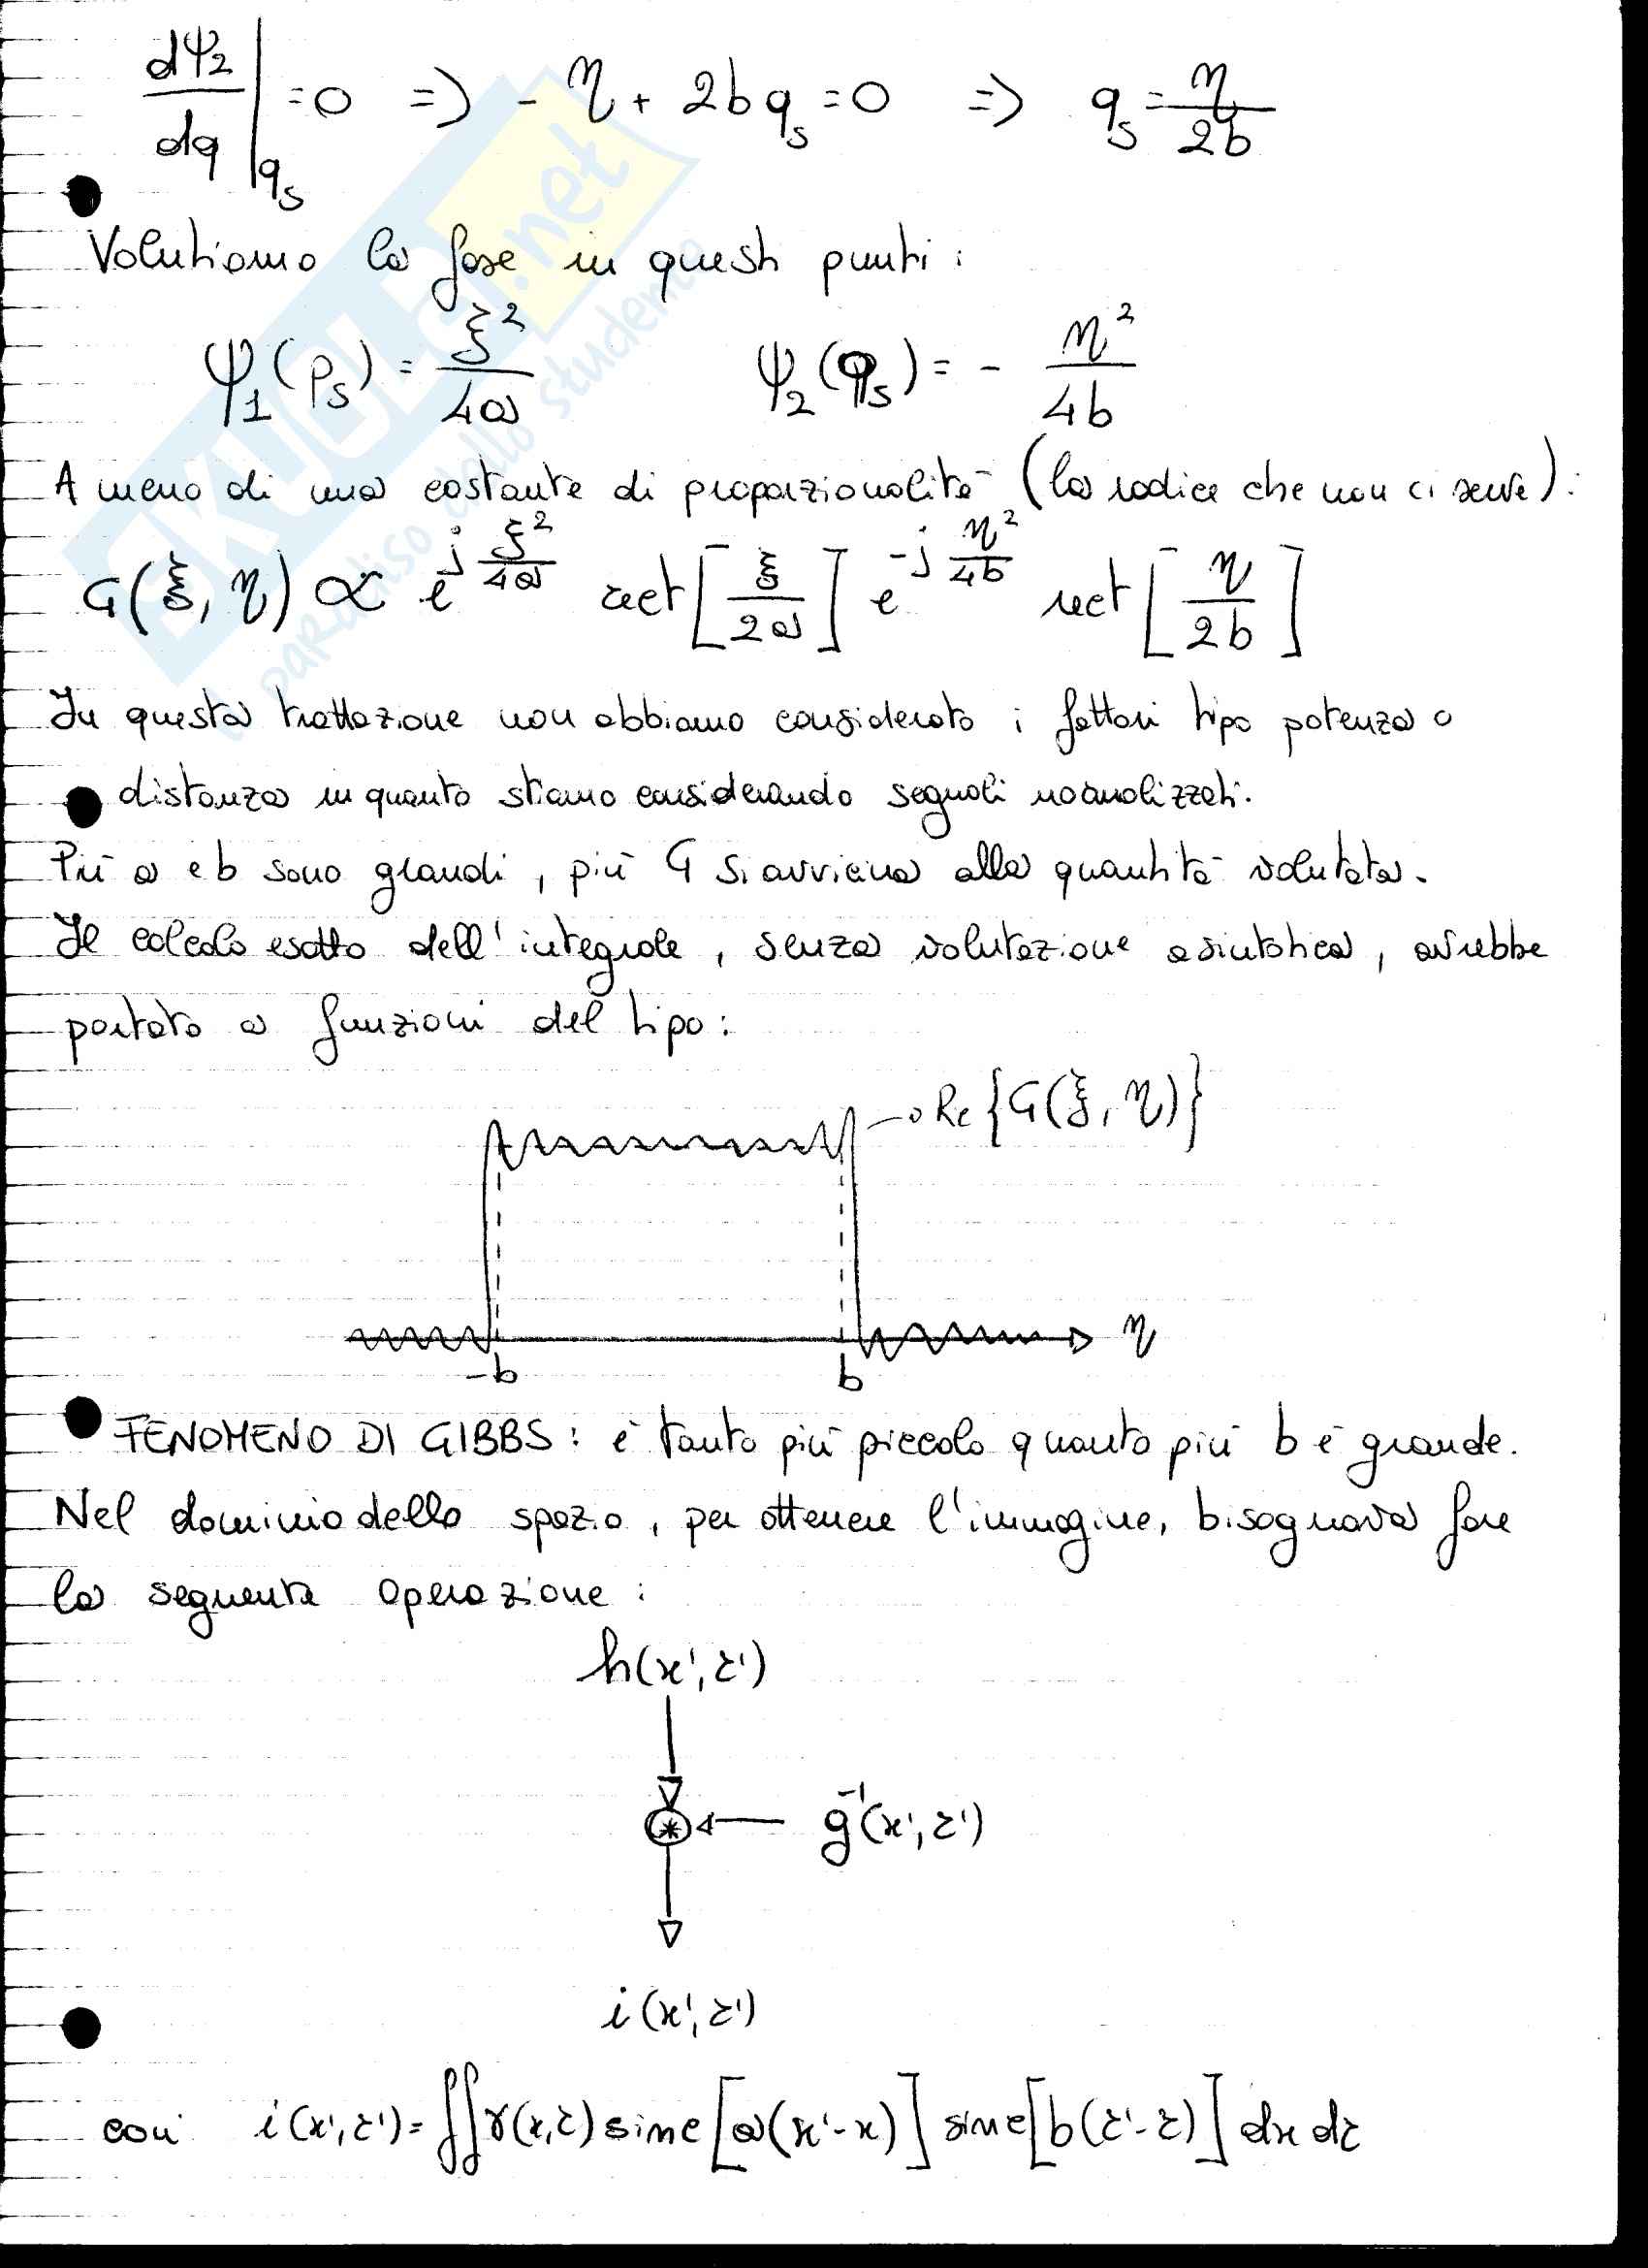 dψ₂/dq |qₛ = 0 => - η + 2bqₛ = 0 => qₛ = η/2b
Valutiamo la fase in questi punti:
ψ₁(pₛ) = ξ²/4a ψ₂(qₛ) = - η²/4b
A meno di una costante di proporzionalità (la radice che non ci serve):
G(ξ, η) ∝ e^{j ξ²/4a} rect[ξ/2a] e^{-j η²/4b} rect[η/2b]
In questa trattazione non abbiamo considerato i fattori tipo potenza o
distanza in quanto stiamo considerando segnali normalizzati.
Più a e b sono grandi, più G si avvicina alla quantità valutata.
Il calcolo esatto dell'integrale, senza valutazione asintotica, avrebbe
portato a funzioni del tipo:
Re{G(ξ, η)}
η
-b b
FENOMENO DI GIBBS: è tanto più piccolo quanto più b è grande.
Nel dominio dello spazio, per ottenere l'immagine, bisognava fare
la seguente operazione:
h(x', r')
* g⁻¹(x', r')
i(x', r')
con i(x', r') = ∬ γ(x, r) sinc[a(x'-x)] sinc[b(r'-r)] dx dr
SKUOLA.net
il paradiso dello studente